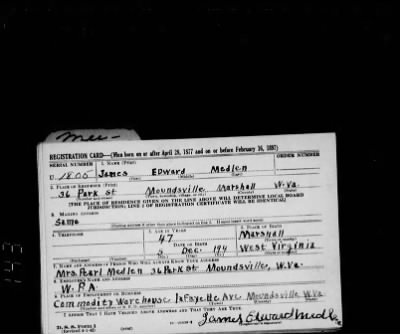 Mc—
REGISTRATION CARD—(Men born on or after April 28, 1877 and on or before February 16, 1897)
SERIAL NUMBER 1. NAME (Print) ORDER NUMBER
U. 1806 James Edward Medlen
2. PLACE OF RESIDENCE (Print)
36 Park St Moundsville Marshall W-Va.
[THE PLACE OF RESIDENCE GIVEN ON THE LINE ABOVE WILL DETERMINE LOCAL BOARD
JURISDICTION; LINE 2 OF REGISTRATION CERTIFICATE WILL BE IDENTICAL]
3. MAILING ADDRESS
Same
4. TELEPHONE 5. AGE IN YEARS 6. PLACE OF BIRTH
47 Marshall
DATE OF BIRTH
Dec. West Virginia
7. NAME AND ADDRESS OF PERSON WHO WILL ALWAYS KNOW YOUR ADDRESS
Mrs. Pearl Medlen 36 Park St Moundsville, W.Va.
8. EMPLOYER'S NAME AND ADDRESS
W.P.A.
9. PLACE OF EMPLOYMENT OR BUSINESS
Commodity Warehouse LaFayette Ave Moundsville W.Va.
I AFFIRM THAT I HAVE VERIFIED ABOVE ANSWERS AND THAT THEY ARE TRUE.
James Edward Medlen